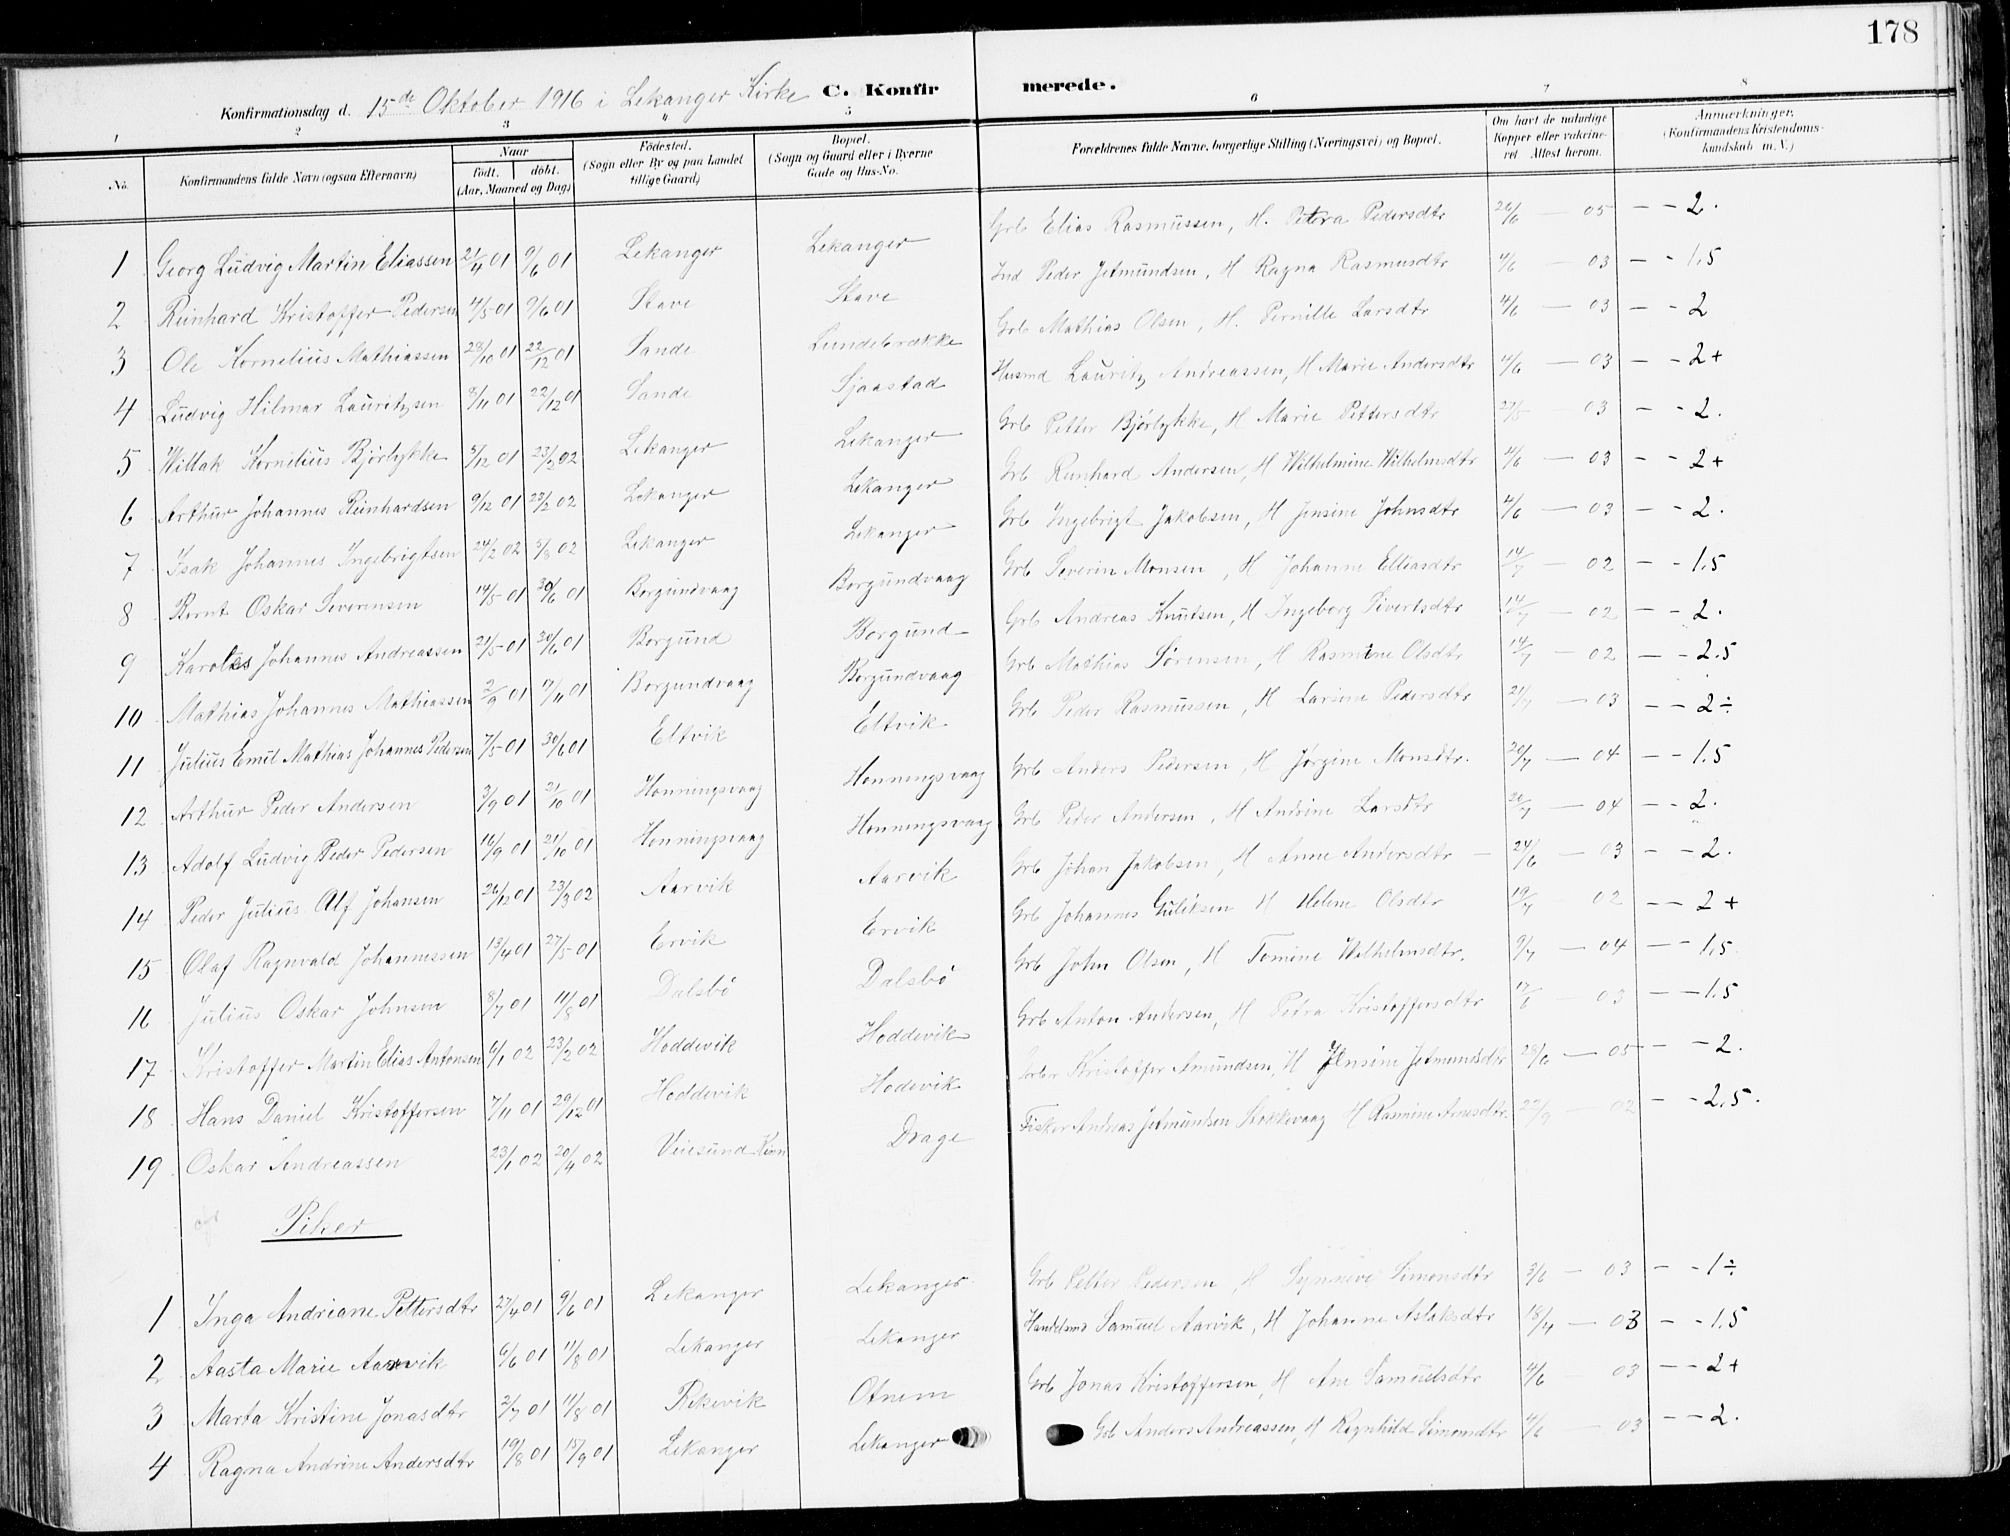 178
Konfirmationsdag d. 15de Oktober 1916 i Lekanger Kirke C. Konfirmerede.
1 2 3 4 5 6 7 8
No. Konfirmandens fulde Navn (ogsaa Efternavn) Naar født. døbt. (Aar, Maaned og Dag) Fødested. (Sogn eller By og paa Landet tillige Gaard) Bopæl. (Sogn og Gaard eller i Byerne Gade og Hus-No. Forældrenes fulde Navne, borgerlige Stilling (Næringsvei) og Bopæl. Om havt de naturlige Kopper eller vakcineret Attest herom. Anmerkninger. (Konfirmandens Kristendomskundskab m. V.)
1 Georg Ludvig Martin Eliassen 21/4 01 9/6 01 Lekanger Lekanger Grb Elias Rasmussen, H. Petra Pedersdtr 26/6 — 05 — - 2.
2 Reinhard Kristoffer Pedersen 4/5 01 9/6 01 Stave Stave Ind Peder Jetmundsen, H Ragna Rasmusdtr 4/6 — 03 — - 1,5
3 Ole Kornelius Mathiassen 28/10 01 22/12 01 Sande Lundebrække Grb Mathias Olsen, H. Pernille Larsdtr 4/6 — 03 — - 2
4 Ludvig Hilmar Lauritzsen 8/11 01 22/12 01 Sande Sjaastad Husmd Lauritz Andreassen, H Marie Andersdtr 4/6 — 03 — - 2+
5 Willak Kornelius Bjørlykke 5/12 01 23/2 02 Lekanger Lekanger Grb Petter Bjørlykke, H Marie Pettersdtr 27/5 — 03 — - 2.
6 Arthur Johannes Reinhardsen 9/12 01 23/2 02 Lekanger Lekanger Grb Reinhard Andersen, H Wilhelmine Wilhelmsdtr 4/6 — 03 — - 2+
7 Isak Johannes Ingebrigtsen 24/2 02 3/8 02 Lekanger Lekanger Grb Ingebrigt Jakobsen, H Jensine Johnsdtr 4/6 — 03 — - 2.
8 Bernt Oskar Severinsen 14/5 01 30/6 01 Borgundvaag Borgundvaag Grb Severin Monsen, H Johanne Elliasdtr 14/7 — 02 — - 1,5
9 Karolus Johannes Andreassen 21/5 01 30/6 01 Borgund Borgund Grb Andreas Knutsen, H Ingeborg Sivertsdtr 14/7 — 02 — - 2.
10 Mathias Johannes Mathiassen 2/9 01 17/11 01 Borgundvaag Borgundvaag Grb Mathias Sørensen, H Rasmine Olsdtr 14/7 — 02 — - 2.5
11 Julius Emil Mathias Johannes Pedersen 7/5 01 30/6 01 Eltvik Eltvik Grb Peder Rasmussen, H Larsine Pedersdtr 21/7 — 03 — - 2÷
12 Arthur Peder Andersen 3/9 01 21/10 01 Honningsvaag Honningsvaag Grb Anders Pedersen, H Jørgine Monsdtr. 20/7 — 04 — - 1.5
13 Adolf Ludvig Peder Pedersen 16/9 01 21/10 01 Honningsvaag Honningsvaag Grb Peder Andersen, H Andrine Larsdtr 20/7 — 04 — - 2.
14 Peder Julius Alf Johansen 26/12 01 23/3 02 Aarvik Aarvik Grb Johan Jakobsen, H Anne Andersdtr — 24/6 — 03 — - 2.
15 Olaf Ragnvald Johannessen 13/4 01 27/5 01 Ervik Ervik Grb Johannes Guliksen H Helene Olsdtr 19/7 — 02 — - 2+
16 Julius Oskar Johnsen 8/7 01 11/8 01 Dalsbø Dalsbø Grb John Olsen, H Tomine Wilhelmsdtr. 9/7 — 04 — - 1,5
17 Kristoffer Martin Elias Antonsen 6/1 02 23/2 02 Hoddevik Hoddevik Grb Anton Andersen, H Petra Kristoffersdtr — 03 — - 1.5
18 Hans Daniel Kristoffersen 7/11 01 29/12 01 Hoddevik Hodevik Grbr Kristoffer Amundsen, H Jensine Jetmundsdtr 28/6 — 05 — - 2.
19 Oskar Andreassen 23/1 02 20/4 02 Veiesund Kinn Drage Fisker Andreas Jetmundsen Stokkevaag H Rasmine Arnesdtr. 22/9 — 02 — - 2,5.
Piker
1 Inga Andriane Pettersdtr 27/4 01 9/6 01 Lekanger Lekanger Grb Petter Pedersen, H Synneve Simonsdtr 3/6 — 03 — - 1÷
2 Aasta Marie Aarvik 6/6 01 11/8 01 Lekanger Lekanger Handelsmd Samuel Aarvik, H Johanne Aslaksdtr 18/4 — 03 — - 1,5
3 Marta Kristine Jonasdtr 2/7 01 11/8 01 Rekevik Otnem Grb Jonas Kristoffersen, H Ane Samuelsdtr 4/6 — 03 — - 2+
4 Ragna Andrine Andersdtr 19/8 01 15/9 01 Lekanger Lekanger Grb Anders Andreassen, H Ragnhild Simonsdtr 4/6 — 03 — - 2.